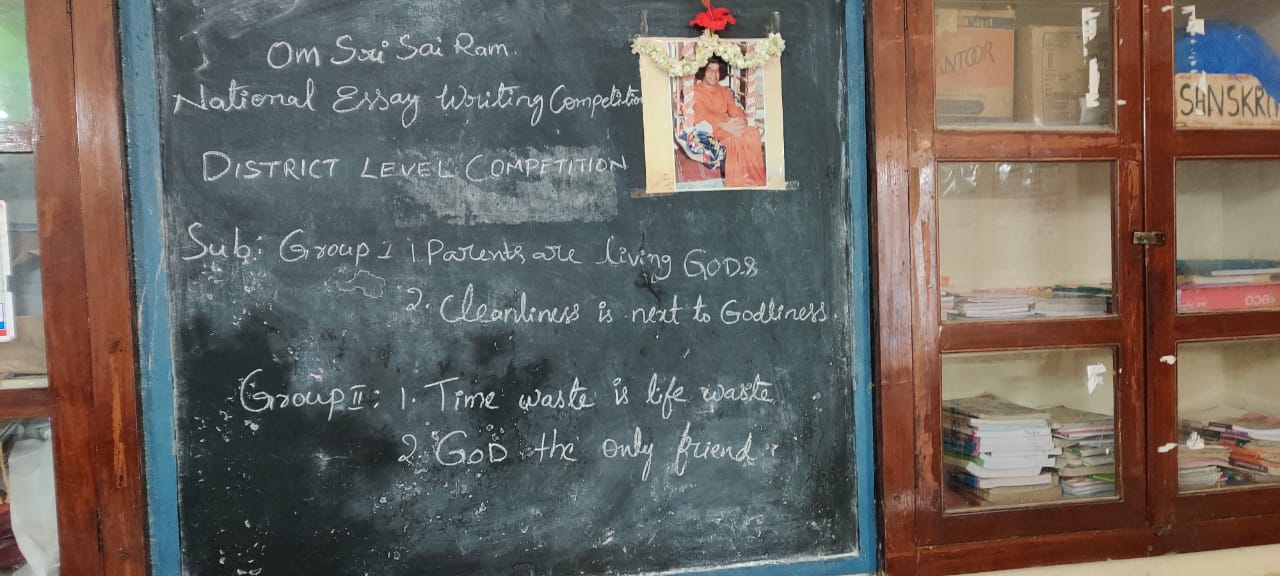 Om Sri Sai Ram.
National Essay Writing Competition
DISTRICT LEVEL COMPETITION
Sub: Group I 1. Parents are living GODS
2. Cleanliness is next to Godliness.
Group II: 1. Time waste is life waste
2. GOD the only friend.
NTOOR
SANSKRI